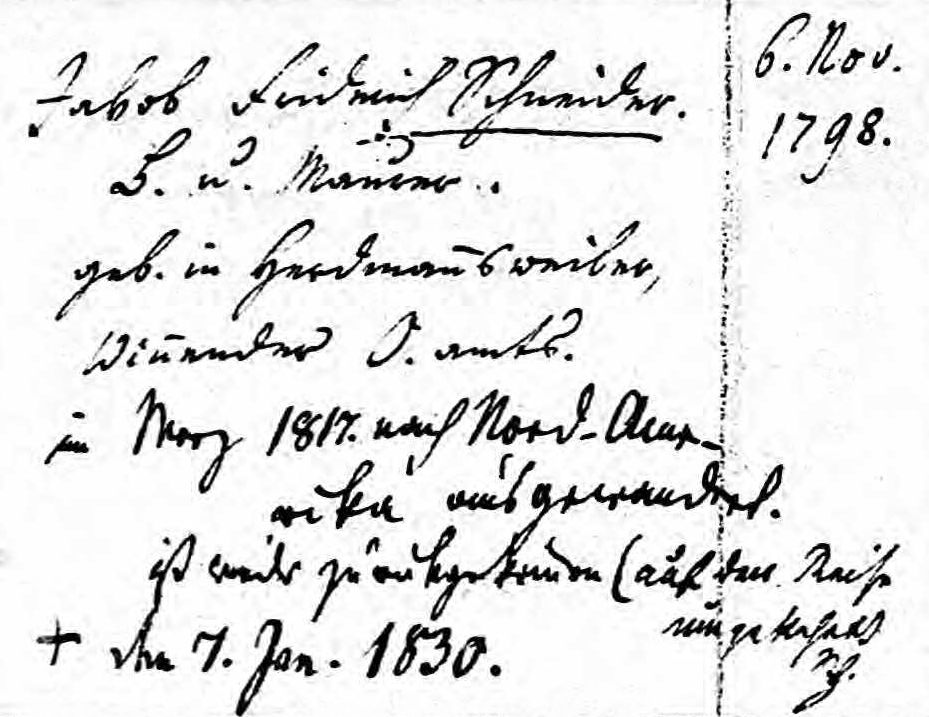 Jakob Fridrich Schneider.
6. Nov.
1798.
B. u. Maurer.
geb. in Hertmanns weiler,
Winnender O. amts.
im Merz 1817. nach Nord-Ame-
rika ausgewandert.
ist wieder zurukgekommen (auf der Reise
umgekehrt
Sch.
† den 7. Jan. 1830.